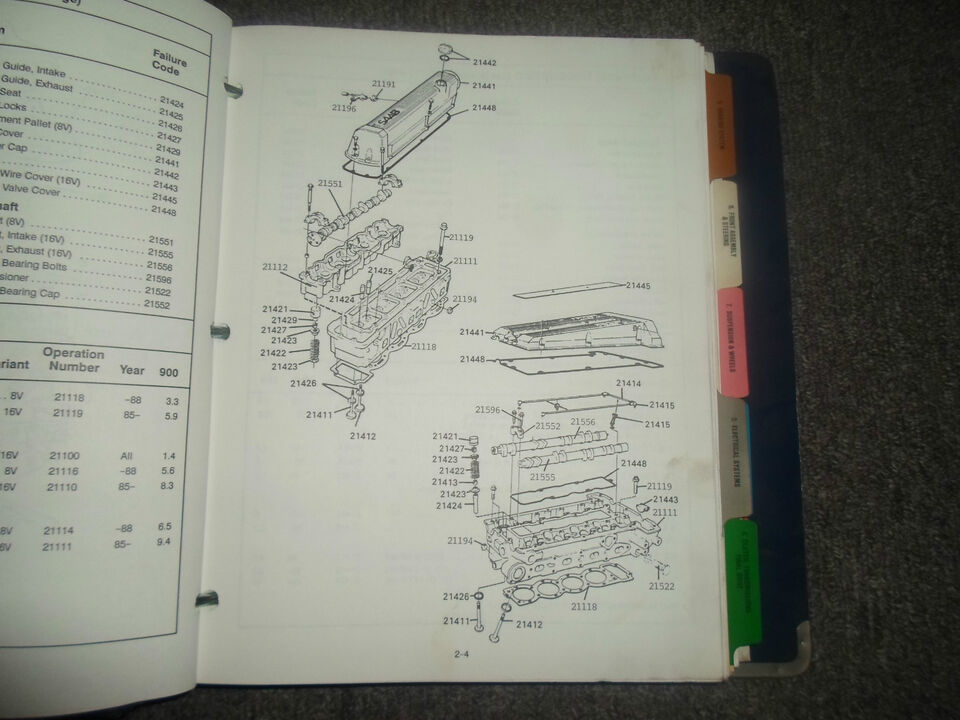 Failure
Code
Guide, Intake 21424
Guide, Exhaust 21425
Seat 21426
Locks 21427
ment Pallet (8V) 21429
Cover 21441
r Cap 21442
Wire Cover (16V) 21443
21445
Valve Cover 21448
aft
(8V) 21551
, Intake (16V) 21555
, Exhaust (16V) 21556
Bearing Bolts 21596
sioner 21522
Bearing Cap 21552
Operation
riant Number Year 900
8V 21118 -88 3.3
16V 21119 85- 5.9
16V 21100 All 1.4
8V 21116 -88 5.6
16V 21110 85- 8.3
8V 21114 -88 6.5
6V 21111 85- 9.4
21442
21191
21441
21196
SAAB
21448
21551
21119
21111
21112
21425
21424
21194
21421
21429
21427
21423
21422
21423
21118
21426
21411
21412
21445
21441
21448
21414
21415
21596
21552
21556
21415
21421
21427
21423
21422
21413
21423
21424
21555
21448
21119
21443
21111
21194
21522
21426
21118
21411
21412
2-4
6. FRONT ASSEMBLY
& STEERING
7. SUSPENSION & WHEELS
3. ELECTRICAL SYSTEMS